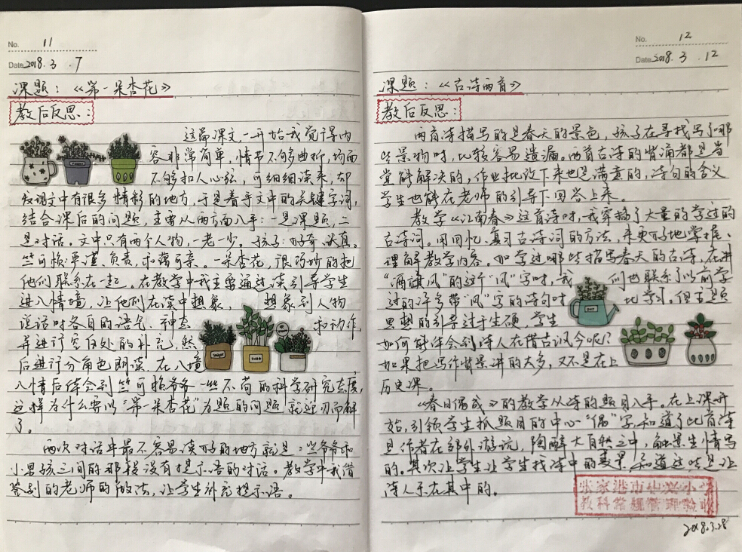 No. 11
Date 2018.3.7
课题：《第一朵杏花》
教后反思：
这篇课文，一开始我觉得内
容非常简单，情节不够曲折，场面
不够扣人心弦，可细细读来，却
发现文中有很多情彩的地方，于是着手文中的关键字词，
结合课后的问题，主要从两方面入手：一是课题，二
是对话。文中只有两个人物，一老一少，孩子：好奇、认真，
竺可桢严谨、负责、求实可亲。一朵杏花，很巧妙的把
他们联系在一起。在教学中我主要通过读引导学生
进入情境，让他们在读中想象，想象别人物
说话时各自的语气、神态和动作，
并进行空白处的补充，然
后进行分角色朗读，在入境
入情后体会到竺可桢爷爷一丝不苟的科学研究态度，
这样为什么要以“第一朵杏花”为题的问题就迎刃而解
了。
两次对话中最不容易读好的地方就是：竺爷爷和
小男孩之间的那段没有提示语的对话。教学中我借
鉴别的老师的做法，让学生补充提示语。
No. 12
Date 2018.3.12
课题：《古诗两首》
教后反思：
两首诗描写的是春天的景色，孩子在寻找写了哪
些景物时，比较容易遗漏，两首古诗的背诵都是当
堂能解决的，作业批改下来也是满意的，诗句的含义
学生也能在老师的引导下回答上来。
教学《江南春》这首诗时，我穿插了大量的学过的
古诗词。用回忆、复习古诗词的方法，来更好地掌握、
理解教学内容。如学过哪些描写春天的古诗，在讲
“酒旗风”的这个“风”字时，我们也联系了以前学
过的许多带“风”字的诗句对比学习，但主题
思想的引导过于生硬，学生
如何能体会到诗人在借古讽今呢？
如果把写作背景讲的太多，又不是在上
历史课。
《春日偶成》的教学从诗的题目入手。在上课开
始，引领学生抓题目的中心“偶”字知道了此首诗
是作者在郊外游玩，陶醉大自然之中，触景生情写
的。其次让学生让学生找诗中的美景，知道这些是让
诗人乐在其中的。
张家港市中兴小学
教科常规管理验收
2018.3.28